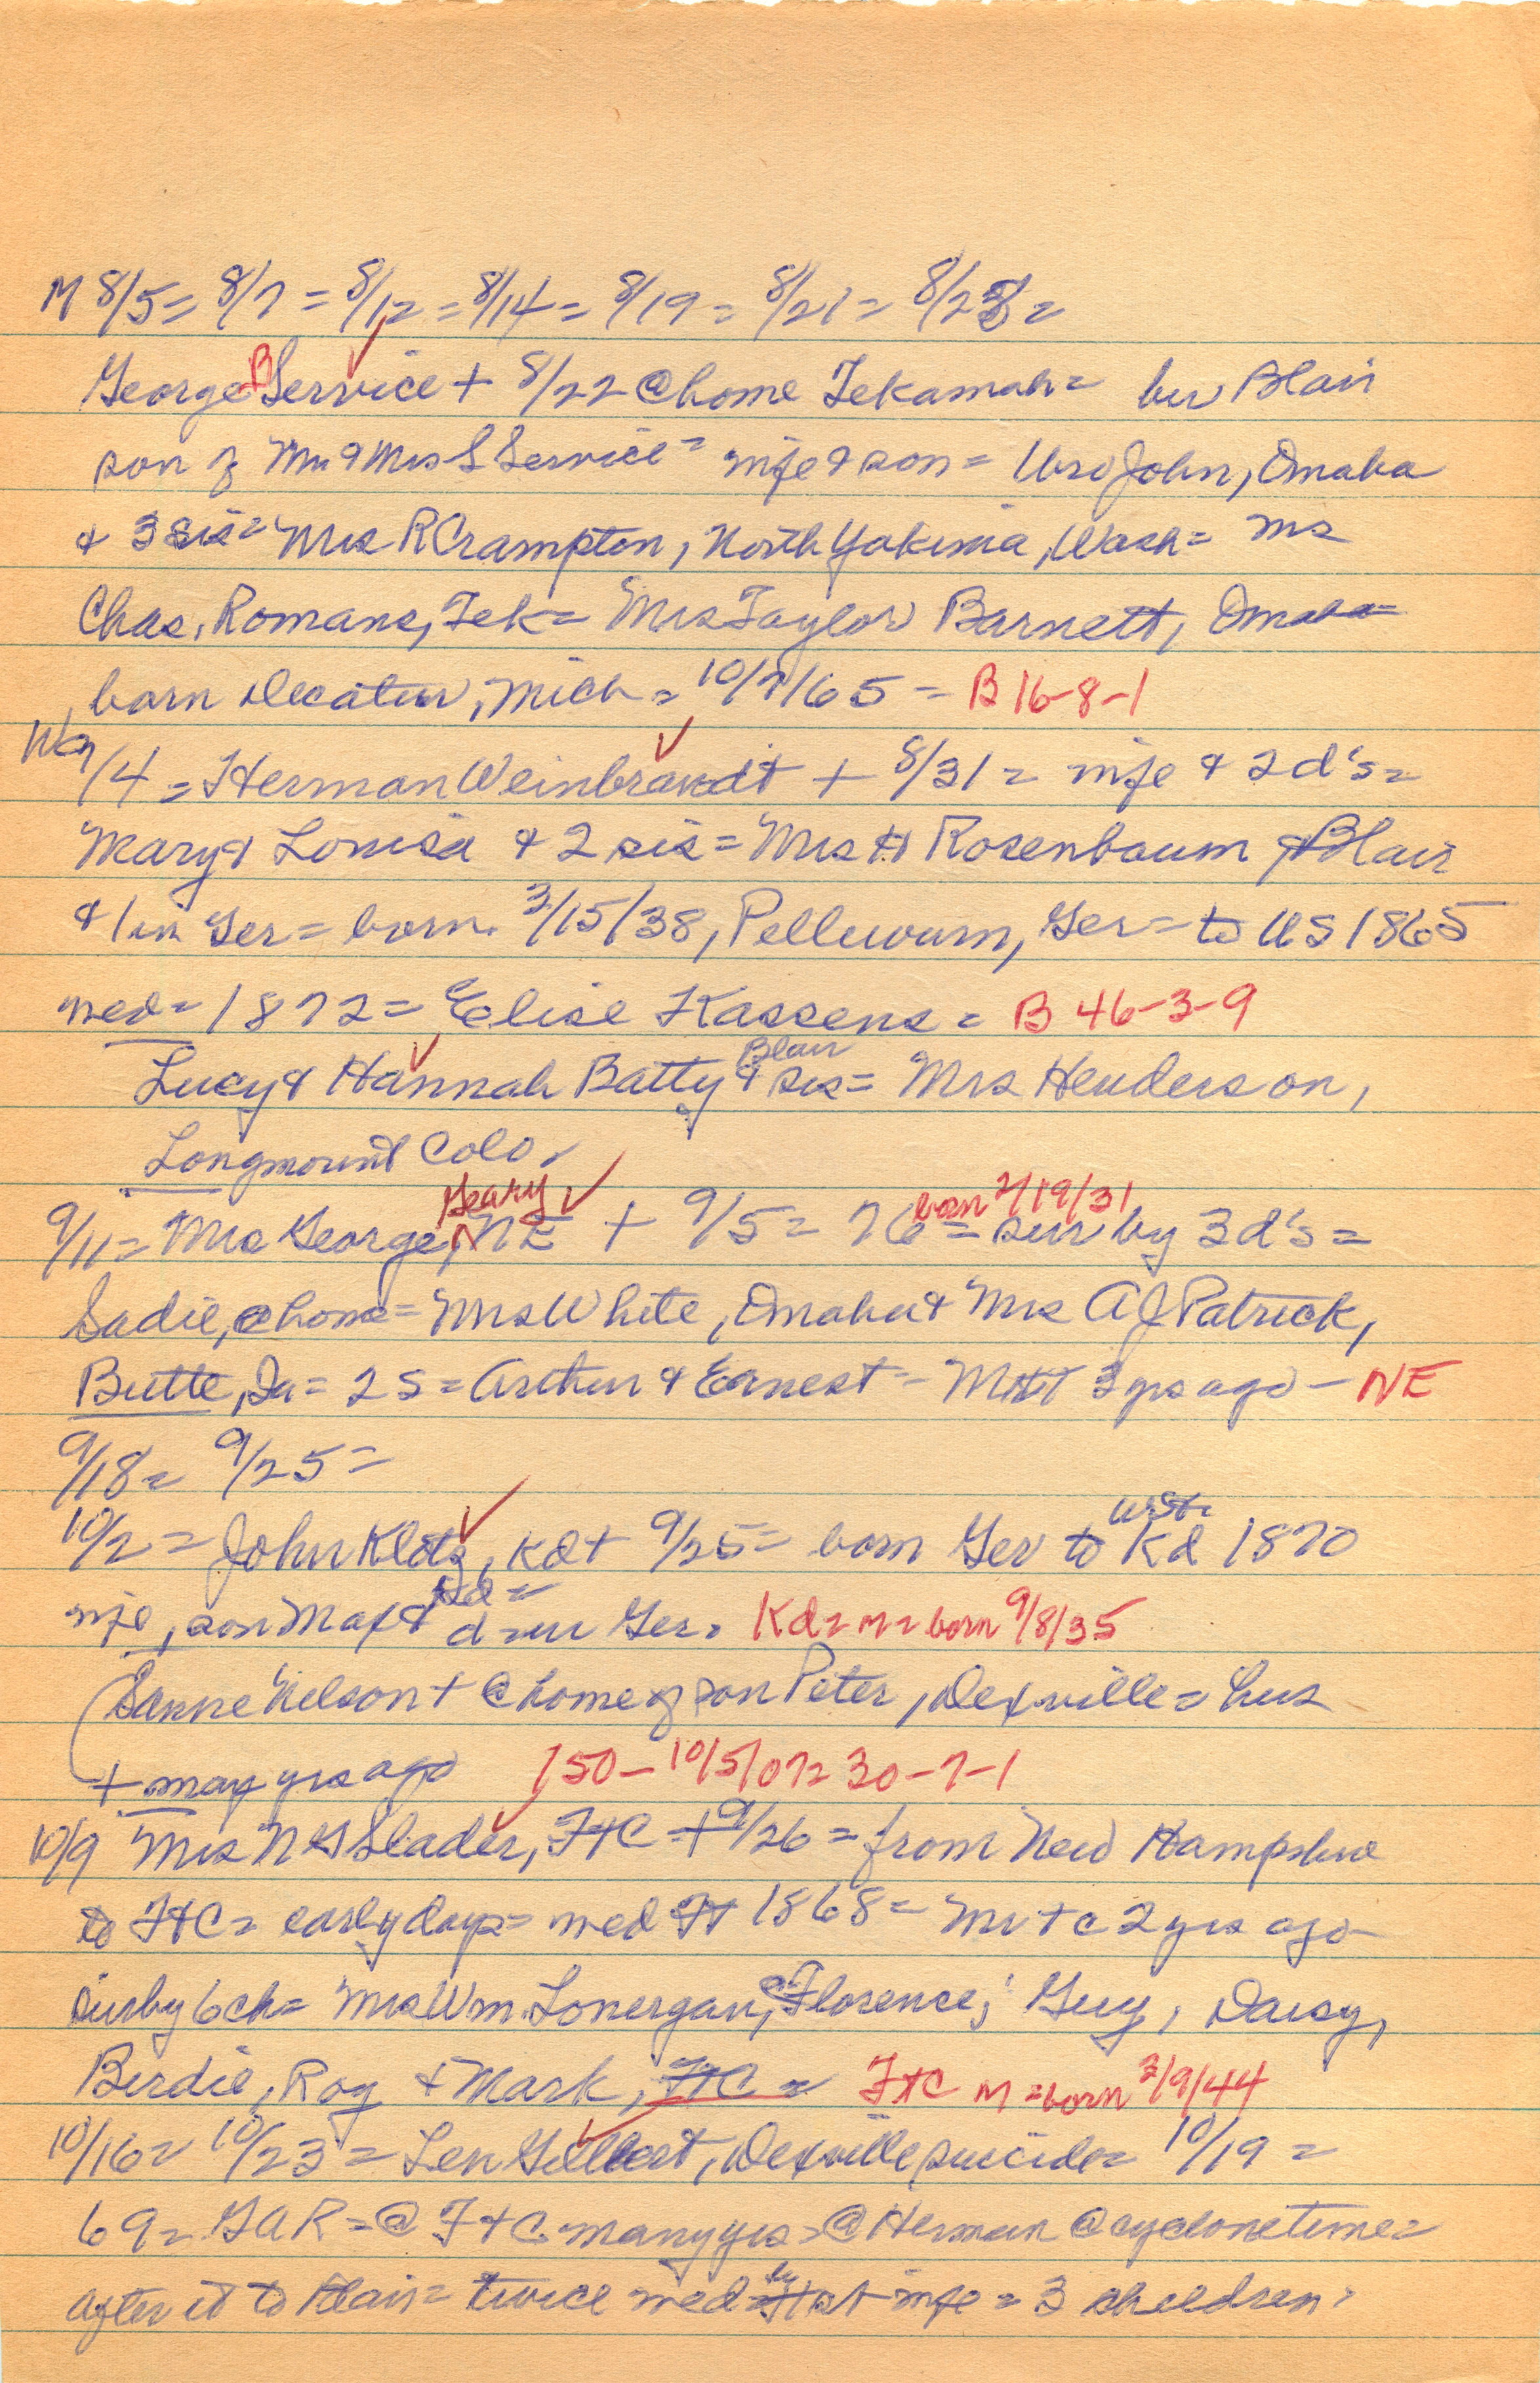 M 8/5 = 8/7 = 8/12 = 8/14 = 8/19 = 8/21 = 8/28 =
George B Service + 8/22 @ home Tekamah = bur Blair
son of Mr & Mrs S Service = wife & son = bro John, Omaha
& 3 sis = Mrs R Crampton, North Yakima, Wash = Mrs
Chas, Romans, Tek = Mrs Taylor Barnett, Omaha =
born Decatur, Mich = 10/7/65 = B 16-8-1
9/4 = Herman Weinbrandt + 8/31 = wife & 2 d's =
Mary & Louisa & 2 sis = Mrs H Rosenbaum Blair
& 1 in Ger = born 3/15/38, Pelluwurm, Ger = to US 1865
med = 1872 = Elise Kassens = B 46-3-9
Blair
Lucy & Hannah Batty & sis = Mrs Henderson,
Longmount Colo.
Geary born 2/19/31
9/11 = Mrs George, NE + 9/5 = 76 = sur by 3 d's =
Sadie, @ home = Mrs White, Omaha & Mrs A J Patrick,
Butte, = 2 S = Arthur & Ernest - Mr + 3 yrs ago - NE
9/18 = 9/25 =
10/2 = John Klotz, Kd + 9/25 = born Ger to Kd 1870
Kd =
wife, son Max & d = in Ger. Kd = m = born 9/8/35
(Sanne Nelson + @ home of son Peter, Dexville = hus
+ may yrs ago 150 - 10/5/07 = 30-7-1
10/9 Mrs N G Slader, FtC + 9/26 = from New Hampshire
to FtC = early days = med Ft 1868 = Mr + c 2 yrs ago
sur by 6 ch = Mrs Wm. Lonergan, Florence; Guy, Daisy,
Birdie, Roy & Mark, FtC = FtC m = born 3/9/44
10/16 = 10/23 = Len Gilbert, Dexville suicide = 10/19 =
69 = GAR = @ FtC many yrs = @ Herman @ cyclone time =
by
after it to Blair = twice med = 1st wife = 3 children =